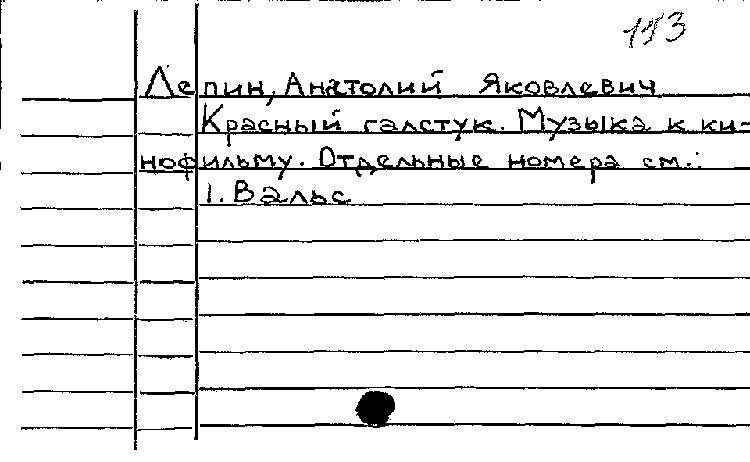 113
Лепин, Анатолий Яковлевич
Красный галстук. Музыка к ки-
нофильму. Отдельные номера см.:
1. Вальс